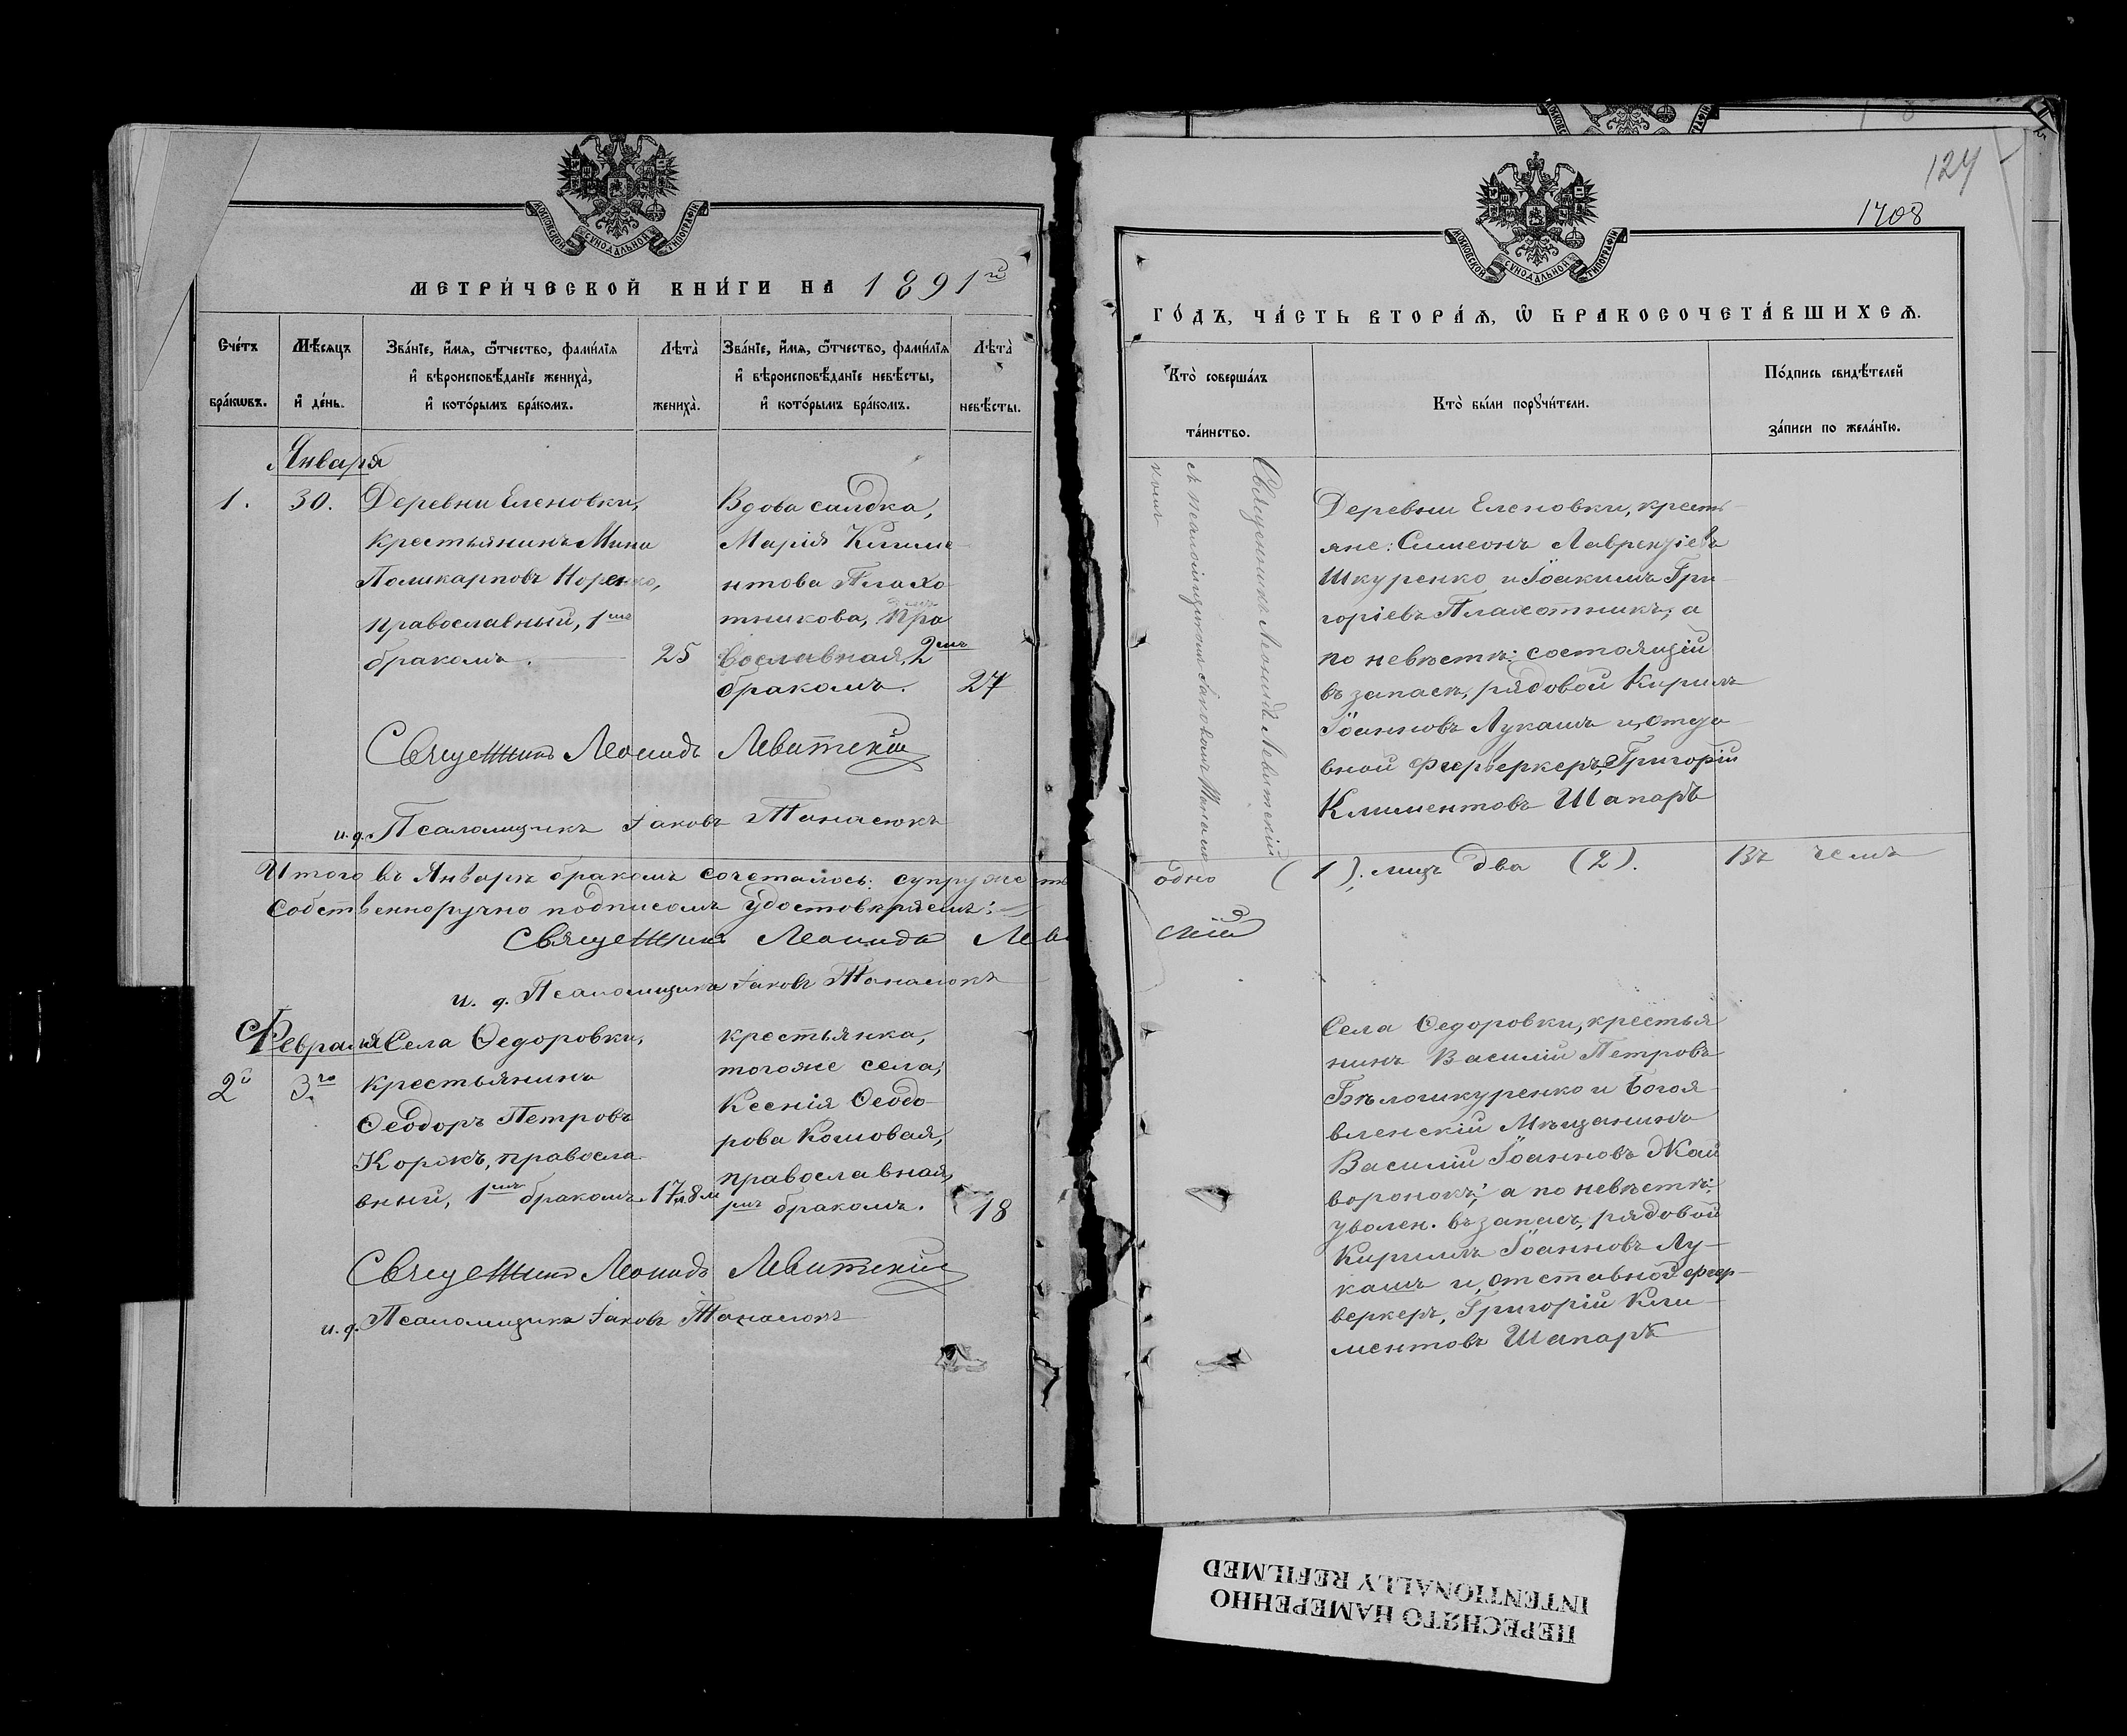 МОСКОВСКОЙ СѴНОДАЛЬНОЙ ТИПОГРАФІИ
МЕТРИ́ЧЕСКОЙ КНИ́ГИ НА 1891й
Сче́тъ бра́кѡвъ.
Мѣ́сяцъ и҆ де́нь.
Зва́нїе, и҆́мѧ, ѻ҆́тчество, фами́лїѧ и҆ вѣроисповѣ́данїе жениха̀, и҆ кото́рымъ бра́комъ.
Лѣта̀ жениха̀.
Зва́нїе, и҆́мѧ, ѻ҆́тчество, фами́лїѧ и҆ вѣроисповѣ́данїе невѣ́сты, и҆ кото́рымъ бра́комъ.
Лѣта̀ невѣ́сты.
Января
1. 30.
Деревни Еленовки,
крестьянинъ Мина
Поликарповъ Норенко,
православный, 1мъ
бракомъ. 25
Вдова солдка,
Марія Климе
нтова Плахо
тникова, пра
вославная, 2мъ
бракомъ. 27
Священникъ Леонидъ Левитскій
и. д. Псаломщикъ Іаковъ Танасюкъ
Итого въ Январѣ бракомъ сочеталось: супружествъ
Собственноручно подписомъ удостовѣряемъ:
Священникъ Леонидъ Леви
и. д. Псаломщикъ Іаковъ Танасюкъ
Февраля
2й 3го
Села Ѳедоровки,
крестьянинъ
Ѳеодоръ Петровъ
Коржъ, правосла
вный, 1мъ бракомъ. 17л 8м
крестьянка,
тогоже села,
Ксенія Ѳеодо
рова Кошовая,
православная,
1мъ бракомъ. 18
Священникъ Леонидъ Левитскій
и. д. Псаломщикъ Іаковъ Танасюкъ
124
1408
МОСКОВСКОЙ СѴНОДАЛЬНОЙ ТИПОГРАФІИ
ГО́ДЪ, ЧА́СТЬ ВТОРА́Ѧ, Ѡ҆ БРАКОСОЧЕТА́ВШИХСѦ.
Кто̀ соверша́лъ та́инство.
Кто̀ бы́ли порꙋчи́тели.
По́дпись свидѣ́телей за́писи по жела́нїю.
Священникъ Леонидъ Левитскій
съ псаломщикомъ Іаковомъ Танасю
комъ
Деревни Еленовки, кресть
яне: Симеонъ Лаврентіевъ
Шкуренко и Іоакимъ Гри
горіевъ Плахотникъ; а
по невѣстѣ: состоящій
въ запасѣ, рядовой Кирилъ
Іоанновъ Лукашъ и, отста
вной Феерверкеръ, Григорій
Климентовъ Шапарь
одно (1); лицъ два (2). Въ чемъ
скій
Села Ѳедоровки, крестья
нинъ Василій Петровъ
Бѣлошкуренко и Богоя
вленскій Мѣщанинъ
Василій Іоанновъ Жай
воронокъ; а по невѣстѣ:
уволен. въ запасъ, рядовой
Кириллъ Іоанновъ Лу
кашъ и, отставной феер
веркеръ, Григорій Кли
ментовъ Шапарь
ПЕРЕСНЯТО НАМЕРЕННО
INTENTIONALLY REFILMED